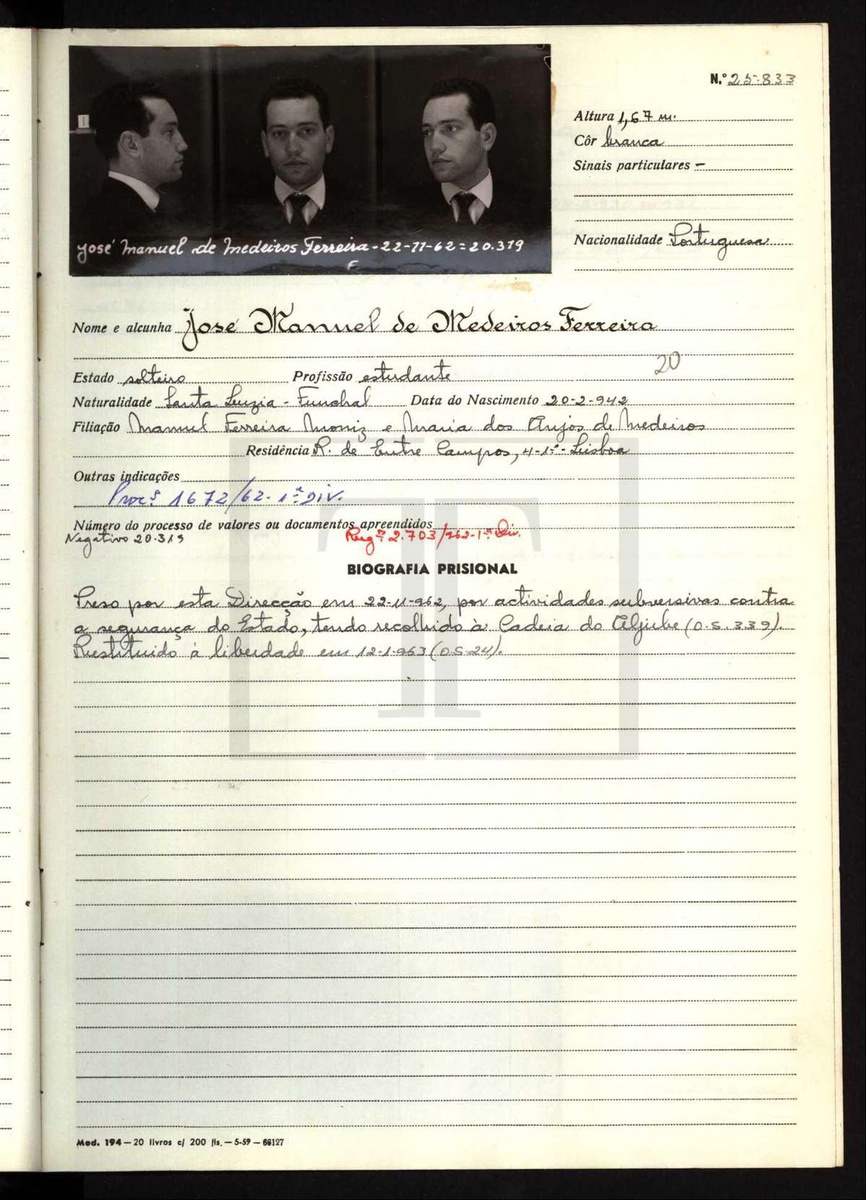 N.º 25.833
Altura 1,67 m.
Côr branca
Sinais particulares –
Nacionalidade Portuguesa
José Manuel de Medeiros Ferreira - 22-11-62 = 20.319
F
Nome e alcunha José Manuel de Medeiros Ferreira
20
Estado solteiro Profissão estudante
Naturalidade Santa Luzia - Funchal Data do Nascimento 20-2-942
Filiação Manuel Ferreira Moniz e Maria dos Anjos de Medeiros
Residência R. de Entre Campos, 4-1º - Lisboa
Outras indicações
Procº 1672/62 - 1ª Div.
Número do processo de valores ou documentos apreendidos
Negativo 20.319 Regº 2.703/962-1ª Div.
BIOGRAFIA PRISIONAL
Preso por esta Direcção em 22-11-962, por actividades subversivas contra
a segurança do Estado, tendo recolhido à Cadeia do Aljube (O.S. 339).
Restituido à liberdade em 12-1-963 (O.S. 24).
Mod. 194 — 20 livros c/ 200 fls. — 5-59 — 66127